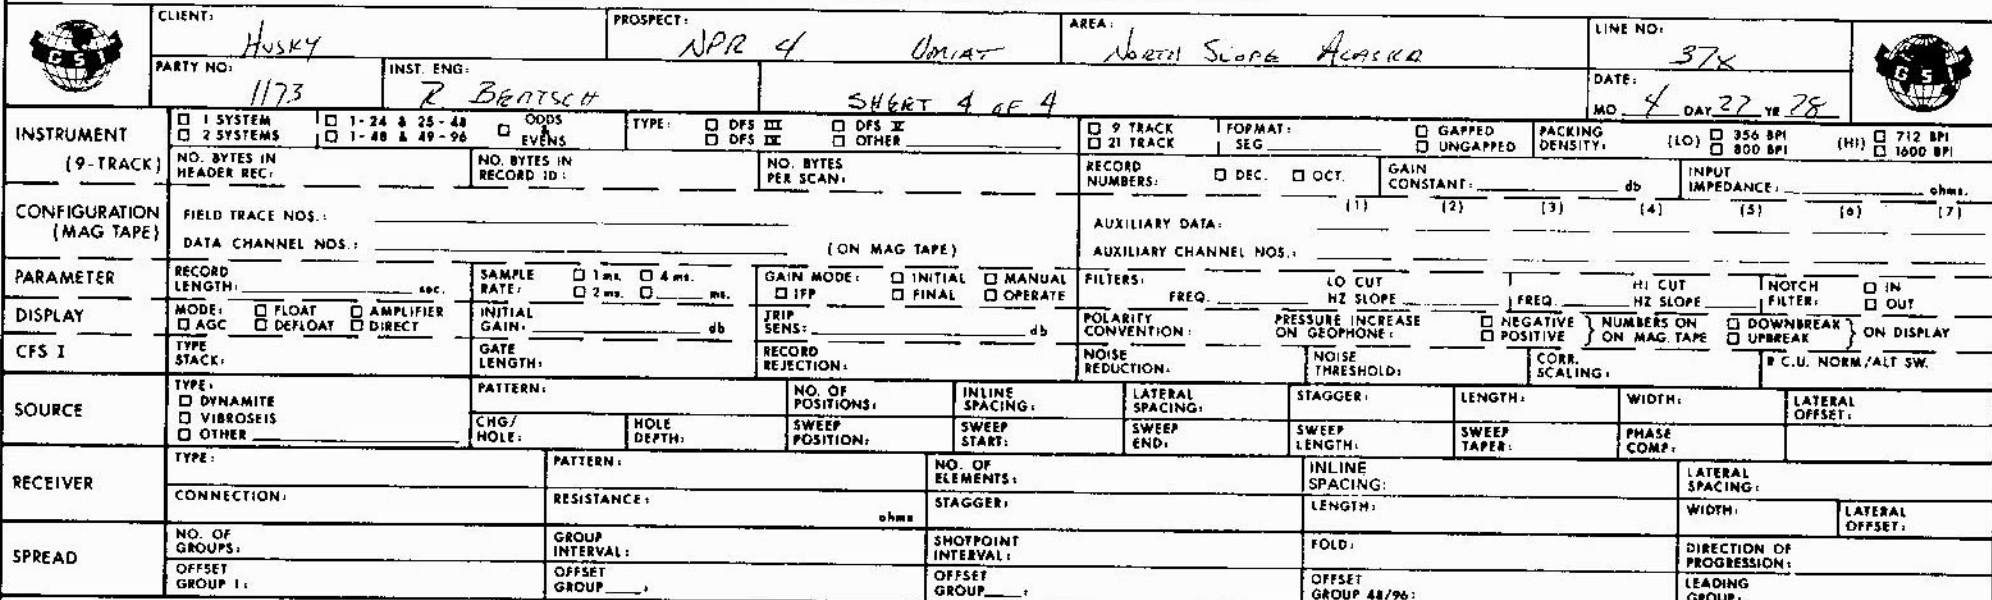 CLIENT: Husky PROSPECT: NPR 4 UMIAT AREA: NORTH SLOPE ALASKA LINE NO: 37X
GSI GSI
PARTY NO: 1173 INST. ENG: R BERTSCH SHEET 4 OF 4 DATE: MO. 4 DAY 27 YR 78
INSTRUMENT (9-TRACK)
□ 1 SYSTEM □ 1-24 & 25-48 □ ODDS & EVENS TYPE: □ DFS III □ DFS V □ 9 TRACK FORMAT: □ GAPPED PACKING DENSITY: (LO) □ 356 BPI (HI) □ 712 BPI
□ 2 SYSTEMS □ 1-48 & 49-96 □ DFS IV □ OTHER □ 21 TRACK SEG □ UNGAPPED □ 800 BPI □ 1600 BPI
NO. BYTES IN HEADER REC: NO. BYTES IN RECORD ID: NO. BYTES PER SCAN: RECORD NUMBERS: □ DEC. □ OCT. GAIN CONSTANT: db INPUT IMPEDANCE: ohms.
CONFIGURATION (MAG TAPE)
(1) (2) (3) (4) (5) (6) (7)
FIELD TRACE NOS.: AUXILIARY DATA:
DATA CHANNEL NOS.: (ON MAG TAPE) AUXILIARY CHANNEL NOS.:
PARAMETER RECORD LENGTH: sec. SAMPLE RATE: □ 1 ms. □ 4 ms. □ 2 ms. □ ms. GAIN MODE: □ INITIAL □ MANUAL □ IFP □ FINAL □ OPERATE FILTERS: FREQ. LO CUT HZ SLOPE FREQ. HI CUT HZ SLOPE NOTCH FILTER: □ IN □ OUT
DISPLAY MODE: □ FLOAT □ AMPLIFIER □ AGC □ DEFLOAT □ DIRECT INITIAL GAIN: db TRIP SENS: db POLARITY CONVENTION: PRESSURE INCREASE ON GEOPHONE: □ NEGATIVE □ POSITIVE } NUMBERS ON MAG. TAPE □ DOWNBREAK □ UPBREAK } ON DISPLAY
CFS I TYPE STACK: GATE LENGTH: RECORD REJECTION: NOISE REDUCTION: NOISE THRESHOLD: CORR. SCALING: R.C.U. NORM/ALT SW.
SOURCE TYPE: □ DYNAMITE □ VIBROSEIS □ OTHER
PATTERN: NO. OF POSITIONS: INLINE SPACING: LATERAL SPACING: STAGGER: LENGTH: WIDTH: LATERAL OFFSET:
CHG/HOLE: HOLE DEPTH: SWEEP POSITION: SWEEP START: SWEEP END: SWEEP LENGTH: SWEEP TAPER: PHASE COMP:
RECEIVER TYPE: PATTERN: NO. OF ELEMENTS: INLINE SPACING: LATERAL SPACING:
CONNECTION: RESISTANCE: ohms STAGGER: LENGTH: WIDTH: LATERAL OFFSET:
SPREAD NO. OF GROUPS: GROUP INTERVAL: SHOTPOINT INTERVAL: FOLD: DIRECTION OF PROGRESSION:
OFFSET GROUP 1: OFFSET GROUP : OFFSET GROUP : OFFSET GROUP 48/96: LEADING GROUP: